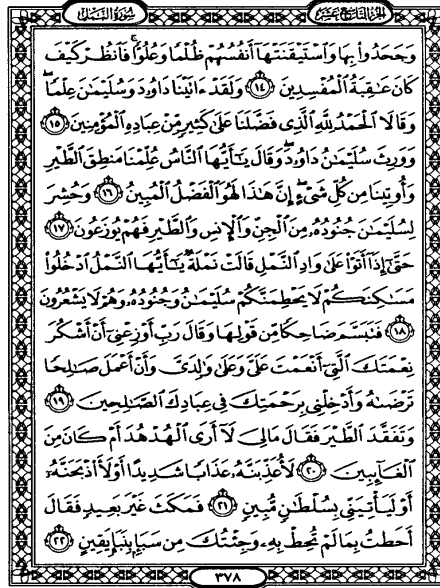 سُورَةُ النَّمْلِ الجُزْءُ التَّاسِعَ عَشَرَ
وَجَحَدُوا۟ بِهَا وَٱسْتَيْقَنَتْهَآ أَنفُسُهُمْ ظُلْمًا وَعُلُوًّا ۚ فَٱنظُرْ كَيْفَ
كَانَ عَـٰقِبَةُ ٱلْمُفْسِدِينَ ١٤ وَلَقَدْ ءَاتَيْنَا دَاوُۥدَ وَسُلَيْمَـٰنَ عِلْمًا ۖ
وَقَالَا ٱلْحَمْدُ لِلَّهِ ٱلَّذِى فَضَّلَنَا عَلَىٰ كَثِيرٍ مِّنْ عِبَادِهِ ٱلْمُؤْمِنِينَ ١٥
وَوَرِثَ سُلَيْمَـٰنُ دَاوُۥدَ ۖ وَقَالَ يَـٰٓأَيُّهَا ٱلنَّاسُ عُلِّمْنَا مَنطِقَ ٱلطَّيْرِ
وَأُوتِينَا مِن كُلِّ شَىْءٍ ۖ إِنَّ هَـٰذَا لَهُوَ ٱلْفَضْلُ ٱلْمُبِينُ ١٦ وَحُشِرَ
لِسُلَيْمَـٰنَ جُنُودُهُۥ مِنَ ٱلْجِنِّ وَٱلْإِنسِ وَٱلطَّيْرِ فَهُمْ يُوزَعُونَ ١٧
حَتَّىٰٓ إِذَآ أَتَوْا۟ عَلَىٰ وَادِ ٱلنَّمْلِ قَالَتْ نَمْلَةٌ يَـٰٓأَيُّهَا ٱلنَّمْلُ ٱدْخُلُوا۟
مَسَـٰكِنَكُمْ لَا يَحْطِمَنَّكُمْ سُلَيْمَـٰنُ وَجُنُودُهُۥ وَهُمْ لَا يَشْعُرُونَ
١٨ فَتَبَسَّمَ ضَاحِكًا مِّن قَوْلِهَا وَقَالَ رَبِّ أَوْزِعْنِىٓ أَنْ أَشْكُرَ
نِعْمَتَكَ ٱلَّتِىٓ أَنْعَمْتَ عَلَىَّ وَعَلَىٰ وَٰلِدَىَّ وَأَنْ أَعْمَلَ صَـٰلِحًا
تَرْضَىٰهُ وَأَدْخِلْنِى بِرَحْمَتِكَ فِى عِبَادِكَ ٱلصَّـٰلِحِينَ ١٩
وَتَفَقَّدَ ٱلطَّيْرَ فَقَالَ مَا لِىَ لَآ أَرَى ٱلْهُدْهُدَ أَمْ كَانَ مِنَ
ٱلْغَآئِبِينَ ٢٠ لَأُعَذِّبَنَّهُۥ عَذَابًا شَدِيدًا أَوْ لَأَا۟ذْبَحَنَّهُۥٓ
أَوْ لَيَأْتِيَنِّى بِسُلْطَـٰنٍ مُّبِينٍ ٢١ فَمَكَثَ غَيْرَ بَعِيدٍ فَقَالَ
أَحَطتُ بِمَا لَمْ تُحِطْ بِهِۦ وَجِئْتُكَ مِن سَبَإٍۭ بِنَبَإٍ يَقِينٍ ٢٢
٣٧٨